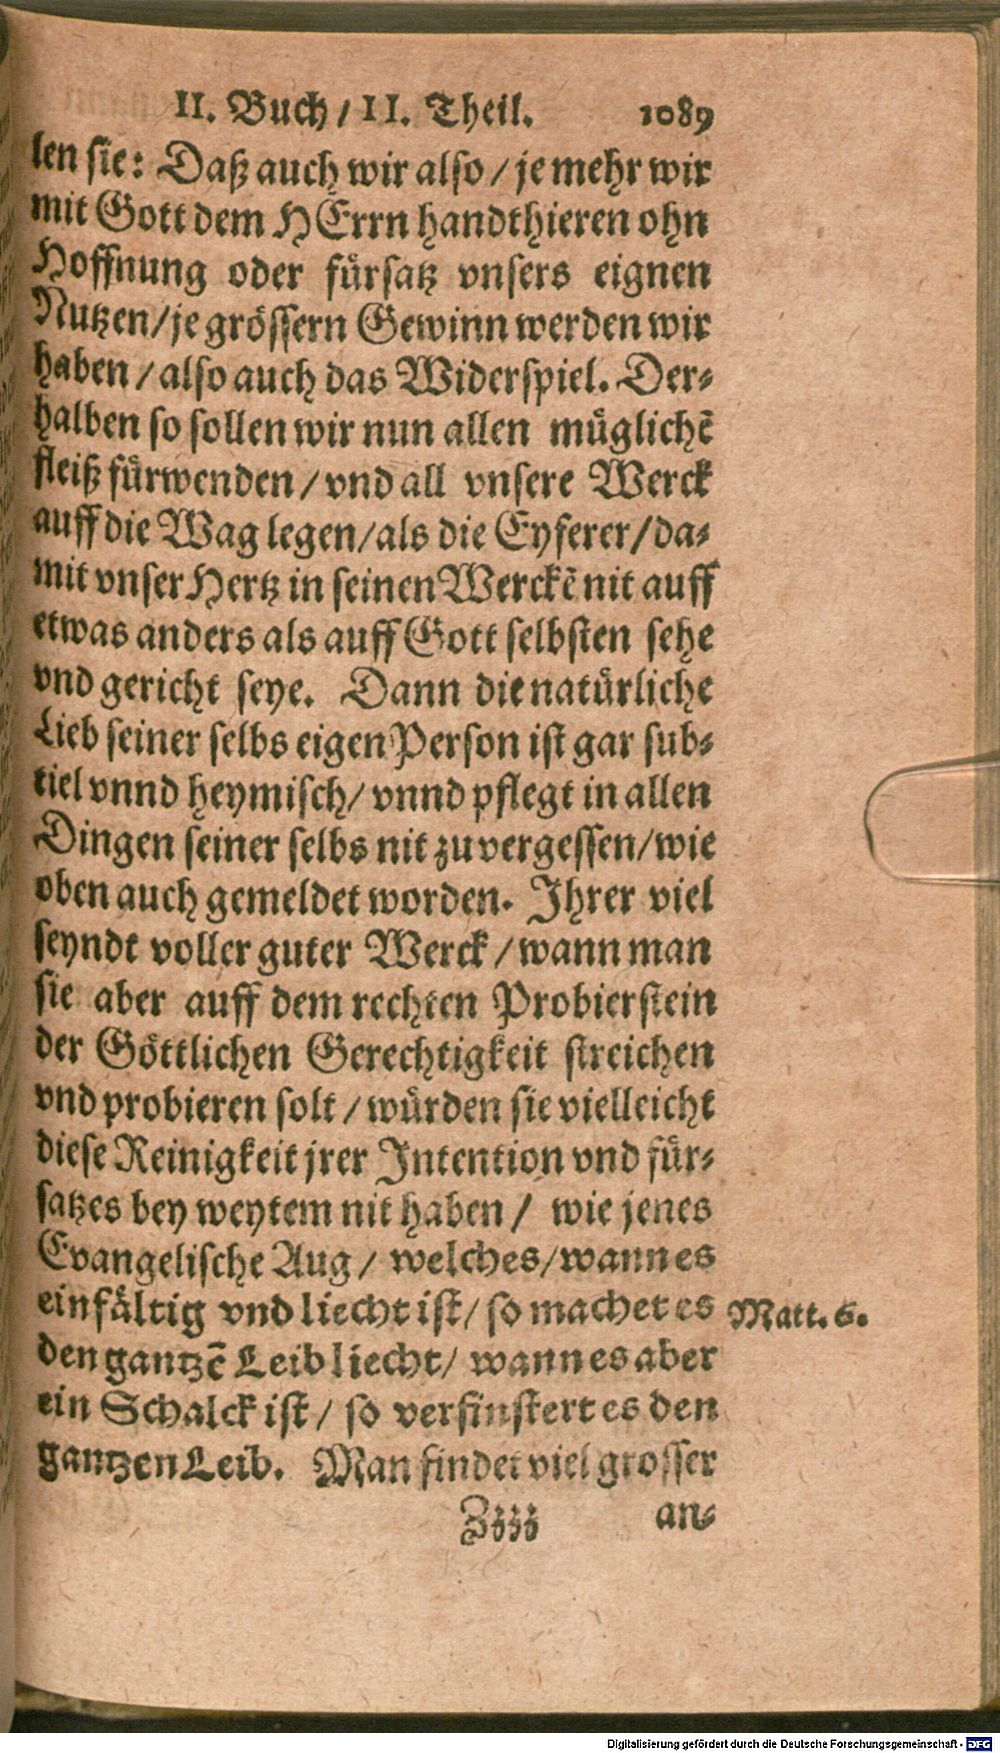 II. Buch / II. Theil. 1089
len sie: Daß auch wir also / je mehr wir
mit Gott dem HErrn handthieren ohn
Hoffnung oder fürsatz vnsers eignen
Nutzen / je grössern Gewinn werden wir
haben / also auch das Widerspiel. Der⸗
halben so sollen wir nun allen müglichē
fleiß fürwenden / vnd all vnsere Werck
auff die Wag legen / als die Eyferer / da⸗
mit vnser Hertz in seinen Werckē nit auff
etwas anders als auff Gott selbsten sehe
vnd gericht seye. Dann die natürliche
Lieb seiner selbs eigen Person ist gar sub⸗
tiel vnnd heymisch / vnnd pflegt in allen
Dingen seiner selbs nit zu vergessen / wie
oben auch gemeldet worden. Ihrer viel
seyndt voller guter Werck / wann man
sie aber auff dem rechten Probierstein
der Göttlichen Gerechtigkeit streichen
vnd probieren solt / würden sie vielleicht
diese Reinigkeit jrer Intention vnd für⸗
satzes bey weytem nit haben / wie jenes
Evangelische Aug / welches / wann es
einfältig vnd liecht ist / so machet es Matt. 6.
den gantzē Leib liecht / wann es aber
ein Schalck ist / so verfinstert es den
gantzen Leib. Man findet viel grosser
Zzzz an⸗
Digitalisierung gefördert durch die Deutsche Forschungsgemeinschaft - DFG